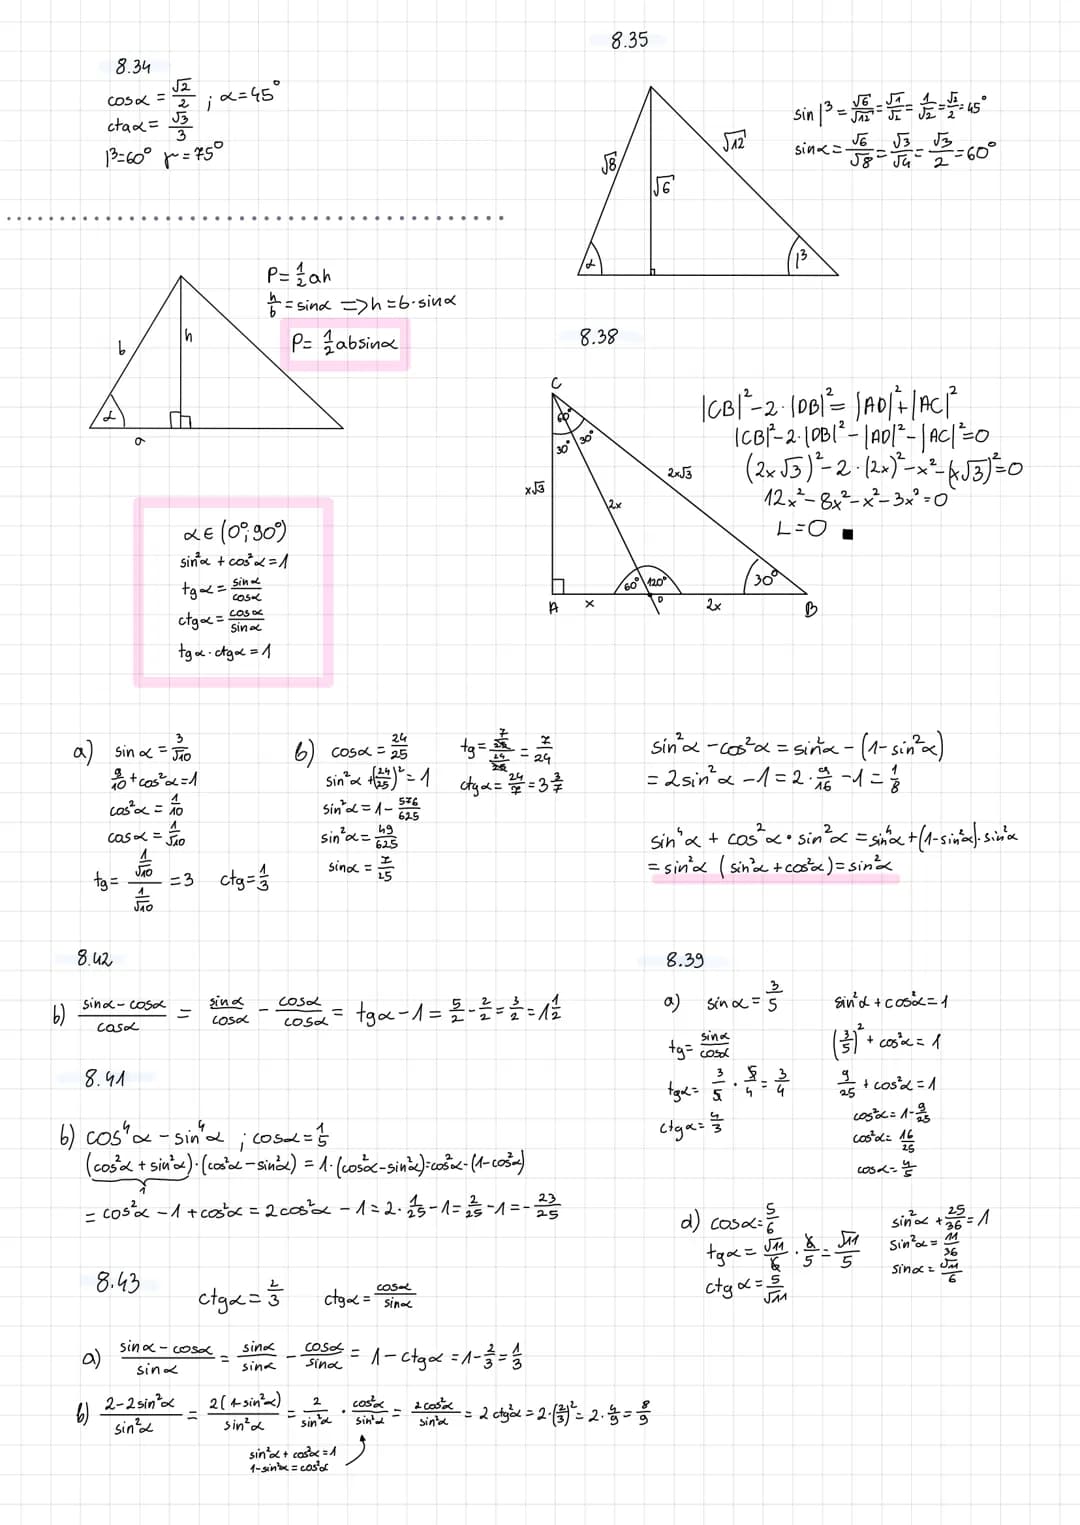 8.34
cosα = √2/2 ; α=45°
ctgα = √3/3
β=60° γ=75°
8.35
√8
√6
√12
α
β
sin β = √6/√12 = √1/√2 = 1/√2 = √2/2 = 45°
sinα = √6/√8 = √3/√4 = √3/2 = 60°
b
h
α
a
P= 1/2 ah
h/b = sinα => h = b·sinα
P= 1/2 absinα
8.38
C
60°
30° 30°
x√3
2x√3
2x
60° 120°
30°
A x D 2x B
|CB|²-2·|DB|² = |AD|²+|AC|²
|CB|²-2·|DB|²-|AD|²-|AC|²=0
(2x√3)²-2·(2x)²-x²-(x√3)²=0
12x²-8x²-x²-3x²=0
L=0 ■
α∈(0°;90°)
sin²α + cos²α = 1
tgα = sinα/cosα
ctgα = cosα/sinα
tgα · ctgα = 1
a) sinα = 3/√10
9/10 + cos²α = 1
cos²α = 1/10
cosα = 1/√10
tg = 1/√10 / 1/√10 = 3 ctg = 1/3
b) cosα = 24/25
sin²α + (24/25)² = 1
sin²α = 1 - 576/625
sin²α = 49/625
sinα = 7/25
tg = 7/25 / 24/25 = 7/24
ctgα = 24/7 = 3 3/7
sin²α - cos²α = sin²α - (1-sin²α)
= 2sin²α - 1 = 2 · 9/16 - 1 = 1/8
sin⁴α + cos²α · sin²α = sin⁴α + (1-sin²α)·sin²α
= sin²α (sin²α + cos²α) = sin²α
8.42
b) sinα-cosα/cosα = sinα/cosα - cosα/cosα = tgα - 1 = 5/2 - 2/2 = 3/2 = 1 1/2
8.41
b) cos⁴α - sin⁴α ; cosα = 1/5
(cos²α + sin²α)·(cos²α - sin²α) = 1·(cos²α - sin²α) = cos²α - (1-cos²α)
1
= cos²α - 1 + cos²α = 2cos²α - 1 = 2 · 1/25 - 1 = 2/25 - 1 = - 23/25
8.39
a) sinα = 3/5
tg = sinα/cosα
tgα = 3/5 · 5/4 = 3/4
ctgα = 4/3
sin²α + cos²α = 1
(3/5)² + cos²α = 1
9/25 + cos²α = 1
cos²α = 1 - 9/25
cos²α = 16/25
cosα = 4/5
d) cosα = 5/6
tgα = √11/6 · 6/5 = √11/5
ctgα = 5/√11
sin²α + 25/36 = 1
sin²α = 11/36
sinα = √11/6
8.43
ctgα = 2/3 ctgα = cosα/sinα
a) sinα - cosα/sinα = sinα/sinα - cosα/sinα = 1 - ctgα = 1 - 2/3 = 1/3
b) 2-2sin²α/sin²α = 2(1-sin²α)/sin²α = 2/sin²α · cos²α/sin²α = 2cos²α/sin²α = 2ctg²α = 2·(2/3)² = 2 · 4/9 = 8/9
sin²α + cos²α = 1
1-sin²α = cos²α